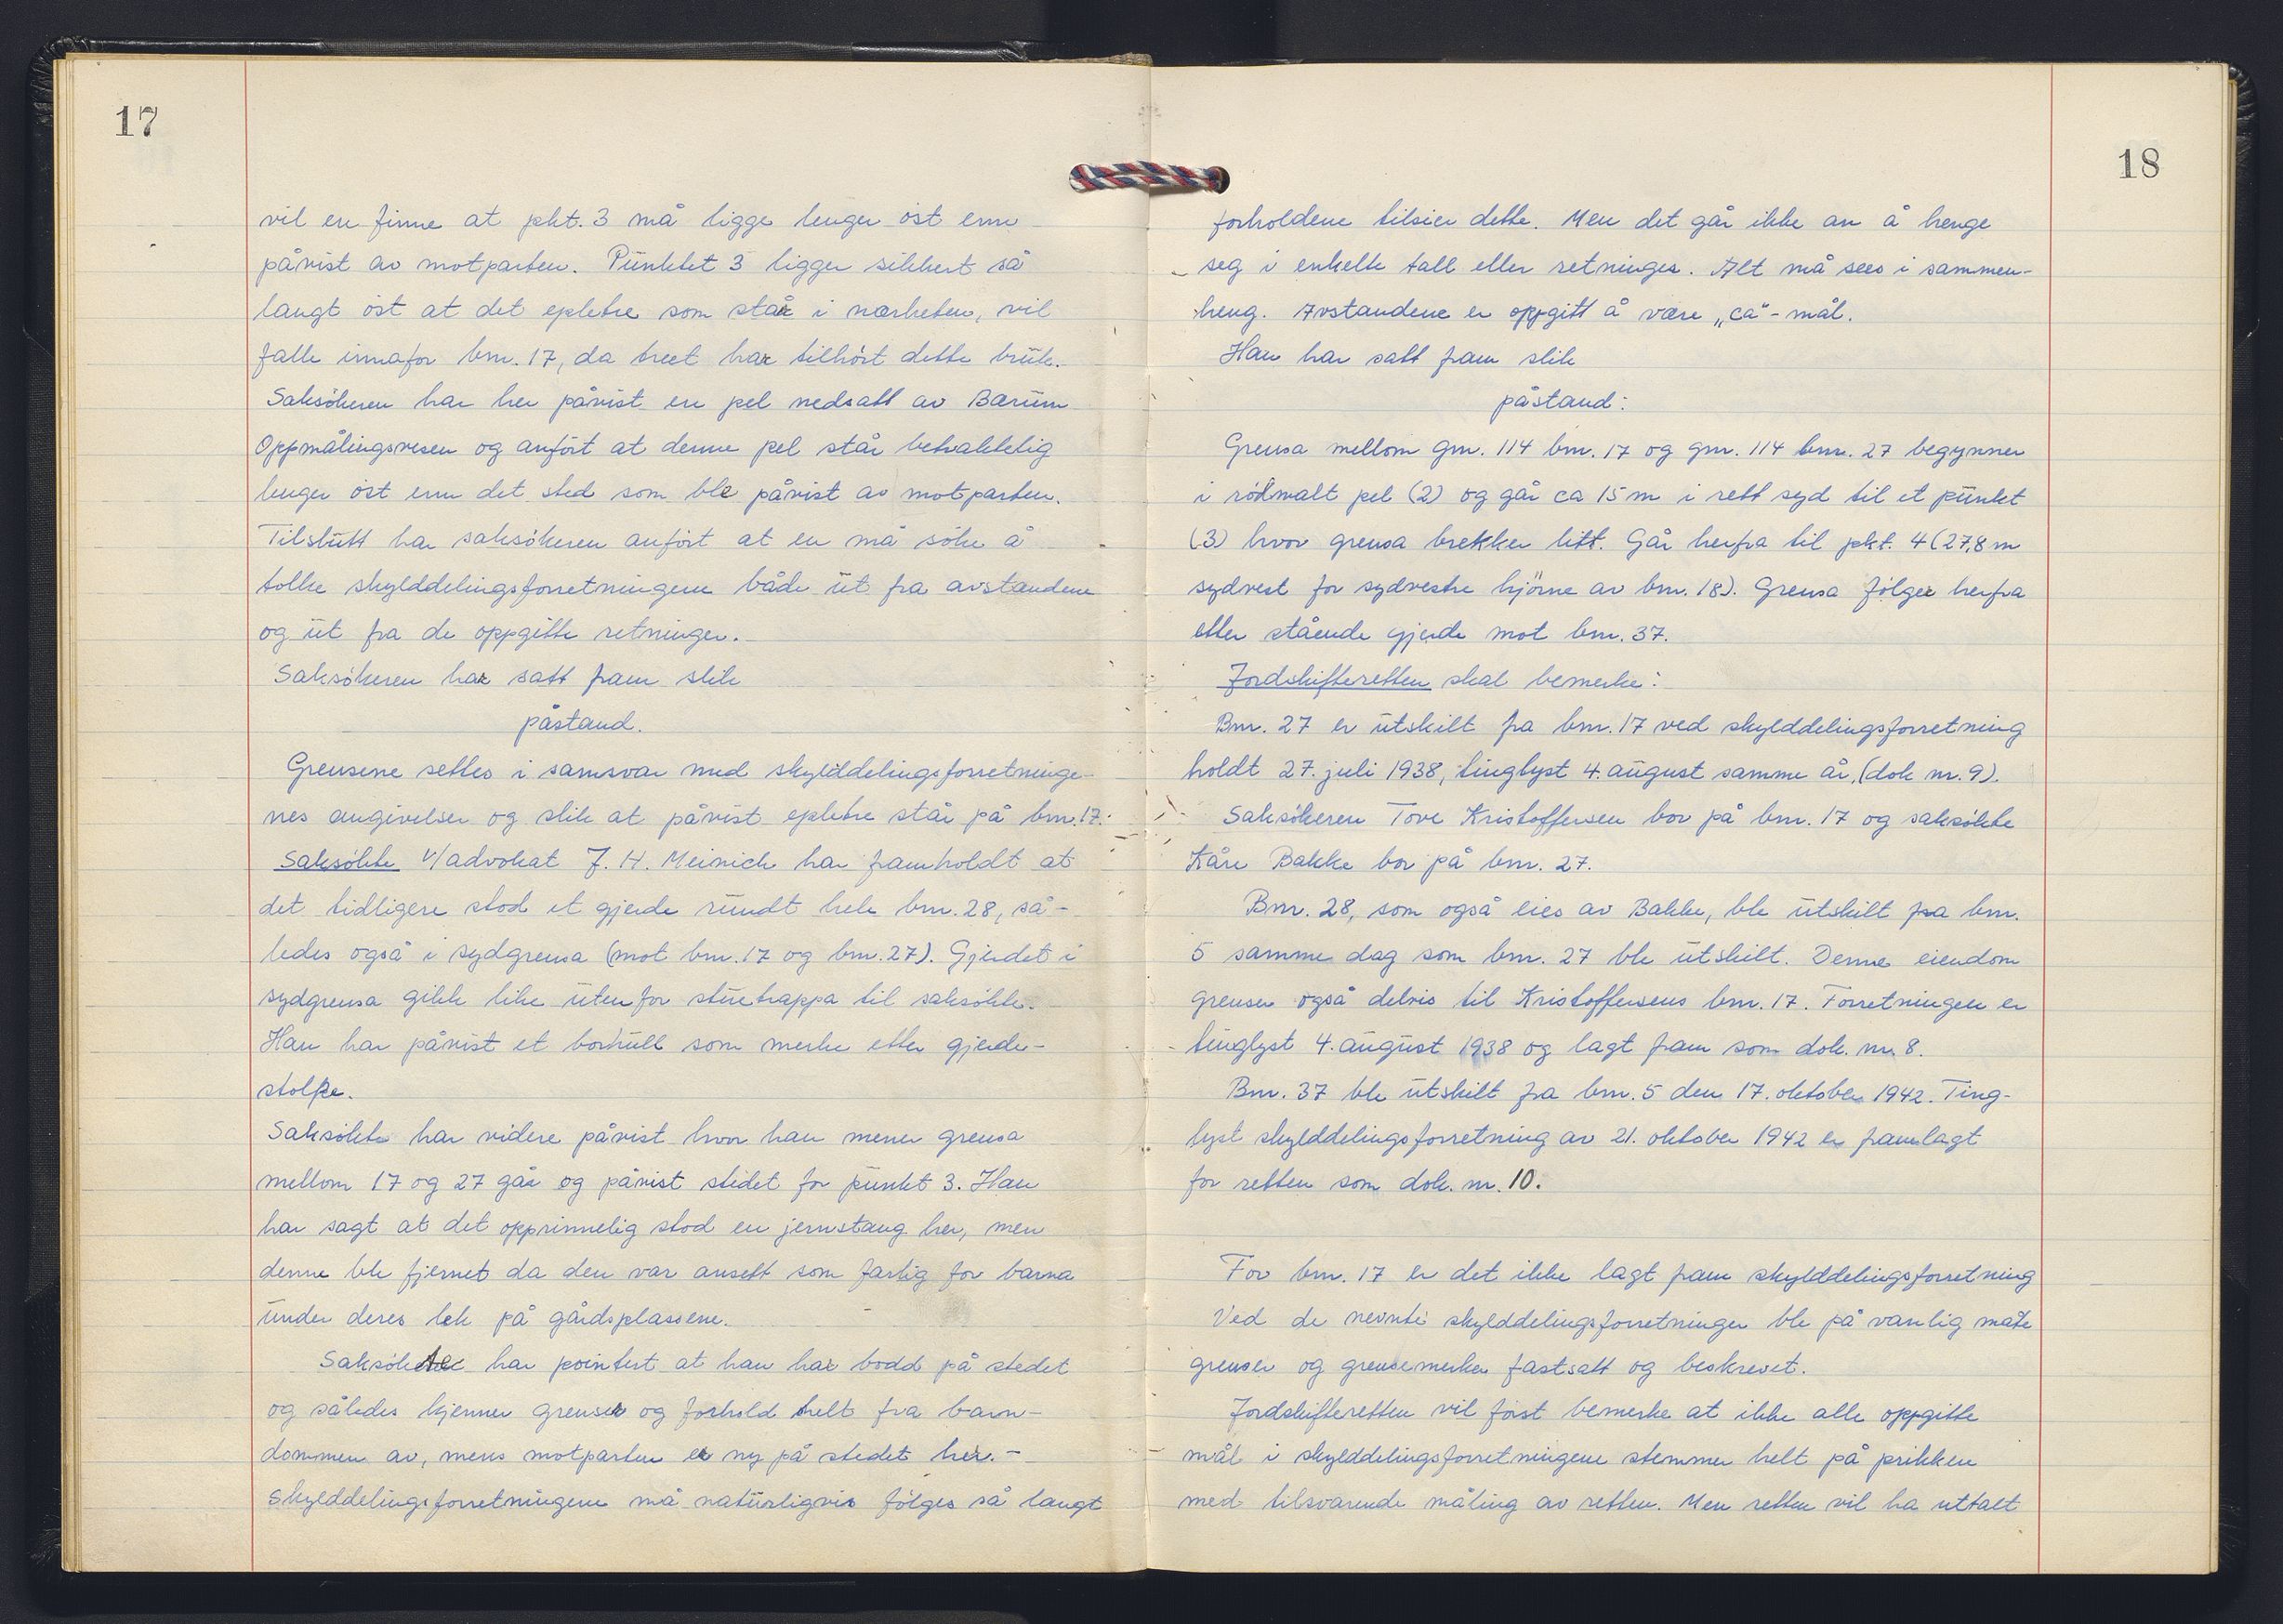 17
vil en finne at pkt. 3 må ligge lenger øst enn
påvist av motparten. Punktet 3 ligger sikkert så
langt øst at det epletre som står i nærheten, vil
falle innafor bnr. 17, da treet har tilhørt dette bruk.
Saksøkeren har her påvist en pel nedsatt av Bærum
Oppmålingsvesen og anført at denne pel står betraktelig
lenger øst enn det sted som ble påvist av motparten.
Tilslutt har saksøkeren anført at en må søke å
tolke skylddelingsforretningene både ut fra avstandene
og ut fra de oppgitte retninger.
Saksøkeren har satt fram slik
påstand.
Grensene settes i samsvar med skylddelingsforretninge-
nes angivelser og slik at påvist epletre står på bnr. 17.
Saksøkte v/advokat J. H. Meinich har framholdt at
det tidligere stod et gjerde rundt hele bnr. 28, så-
ledes også i sydgrensa (mot bnr. 17 og bnr. 27). Gjerdet i
sydgrensa gikk like utenfor stuetrappa til saksøkte.
Han har påvist et borhull som merke etter gjerde-
stolpe.
Saksøkte har videre påvist hvor han mener grensa
mellom 17 og 27 går og påvist stedet for punkt 3. Han
har sagt at det opprinnelig stod en jernstang her, men
denne ble fjernet da den var ansett som farlig for barna
under deres lek på gårdsplassene.
Saksøkte har pointert at han har bodd på stedet
og således kjenner grenser og forhold helt fra barn-
dommen av, mens motparten er ny på stedet her.-
Skylddelingsforretningene må naturligvis følges så langt
18
forholdene tilsier dette. Men det går ikke an å henge
seg i enkelte tall eller retninger. Alt må sees i sammen-
heng. Avstandene er oppgitt å være „ca"-mål.
Han har satt fram slik
påstand:
Grensa mellom gnr. 114 bnr. 17 og gnr. 114 bnr. 27 begynner
i rödmalt pel (2) og går ca 15 m i rett syd til et punkt
(3) hvor grensa brekker litt. Går herfra til pkt. 4 (27,8 m
sydvest for sydvestre hjørne av bnr. 18). Grensa følger herfra
etter stående gjerde mot bnr. 37.
Jordskifteretten skal bemerke:
Bnr. 27 er utskilt fra bnr. 17 ved skylddelingsforretning
holdt 27. juli 1938, tinglyst 4. august samme år, (dok nr. 9).
Saksøkeren Tove Kristoffersen bor på bnr. 17 og saksøkte
Kåre Bakke bor på bnr. 27.
Bnr. 28, som også eies av Bakke, ble utskilt fra bnr.
5 samme dag som bnr. 27 ble utskilt. Denne eiendom
grenser også delvis til Kristoffersens bnr. 17. Forretningen er
tinglyst 4. august 1938 og lagt fram som dok. nr. 8.
Bnr. 37 ble utskilt fra bnr. 5 den 17. oktober 1942. Ting-
lyst skylddelingsforretning av 21. oktober 1942 er framlagt
for retten som dok. nr. 10.
For bnr. 17 er det ikke lagt fram skylddelingsforretning
Ved de nevnte skylddelingsforretninger ble på vanlig måte
grenser og grensemerker fastsatt og beskrevet.
Jordskifteretten vil først bemerke at ikke alle oppgitte
mål i skylddelingsforretningene stemmer helt på prikken
med tilsvarende måling av retten. Men retten vil ha uttalt